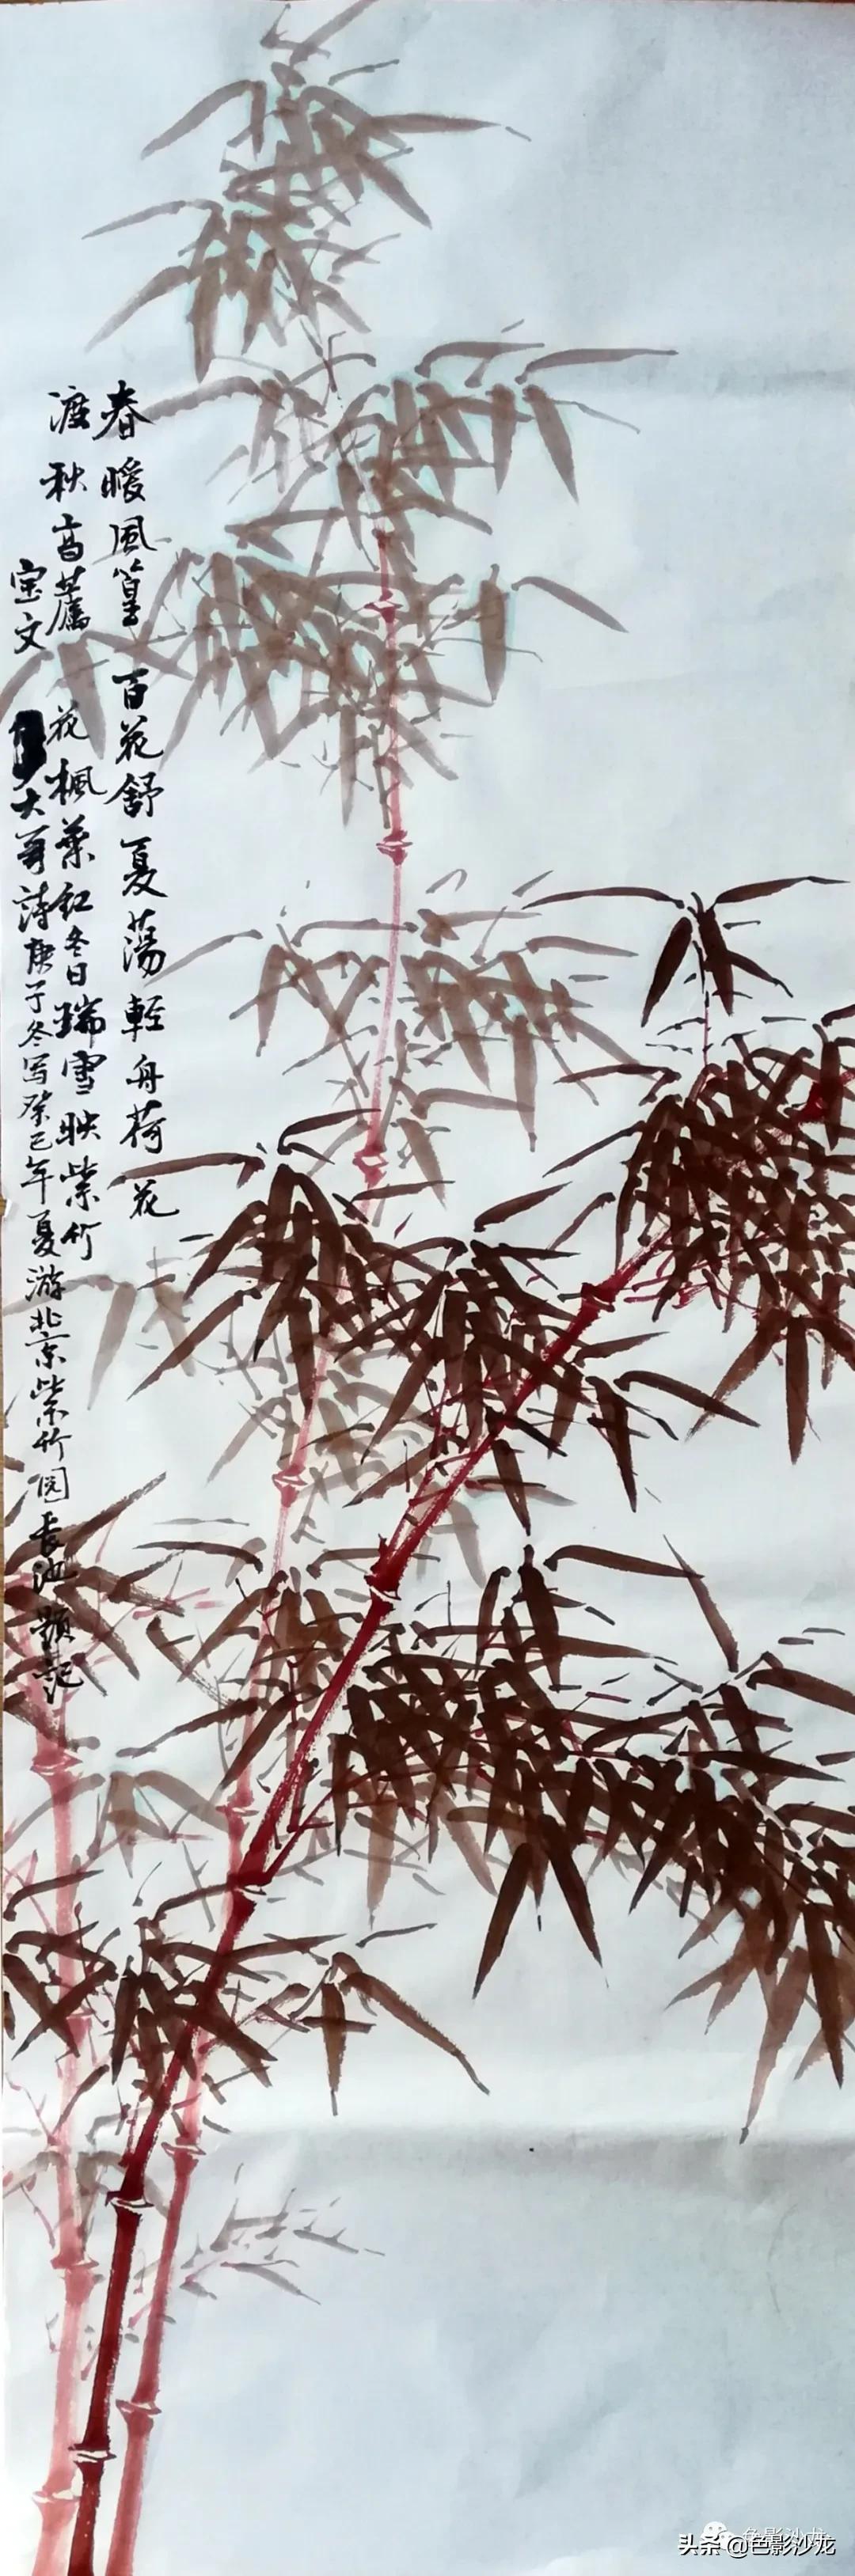 春暖風篁百花舒夏蕩輕舟荷花
渡秋高蘆花楓葉紅冬日瑞雪映紫竹
宝文大哥詩庚子冬写癸巳年夏游北京紫竹园長池题記
头条 @色影沙龙
色影沙龙